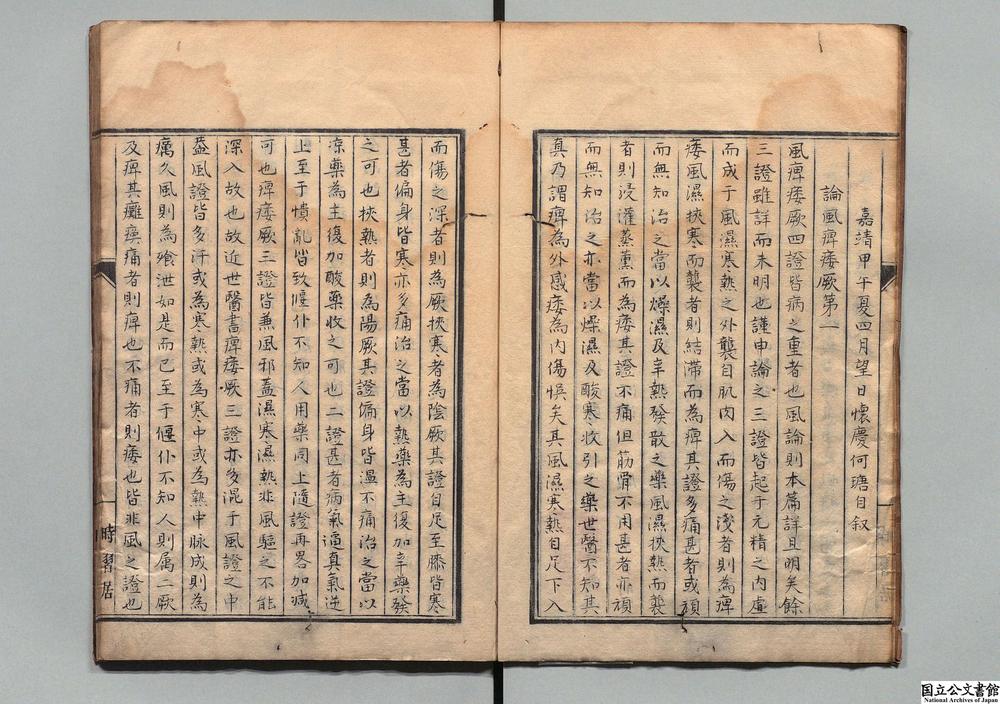 嘉靖甲午夏四月望日懷慶何瑭自叙
論風痺痿厥第一
風痺痿厥四證皆病之重者也風論則本篇詳且明矣餘
三證雖詳而未明也謹申論之三證皆起于元精之内虛
而成于風濕寒熱之外襲自肌肉入而傷之淺者則為痺
痿風濕挾寒而襲者則結滯而為痺其證多痛甚者或頑
而無知治之當以燥濕及辛熱發散之藥風濕挾熱而襲
者則浸灌蒸薰而為痿其證不痛但筋骨不用甚者亦頑
而無知治之亦當以燥濕及酸寒收引之藥世醫不知其
真乃謂痺為外感痿為内傷悞矣其風濕寒熱自足下入
而傷之深者則為厥挾寒者為陰厥其證自足至膝皆寒
甚者偏身皆寒亦多痛治之當以熱藥為主後加辛藥發
之可也挾熱者則為陽厥其證偏身皆溫不痛治之當以
凉藥為主復加酸藥收之可也二證甚者病氣逼真氣逆
上至于憒亂皆致偃仆不知人用藥同上隨證再畧加减
可也痺痿厥三證皆兼風邪盖濕寒濕熱非風驅之不能
深入故也故近世醫書痺痿厥三證亦多混于風證之中
盖風證皆多汗或為寒熱或為寒中或為熱中脉成則為
癘久風則為飱泄如是而已至于偃仆不知人則属二厥
及痺其癱瘓痛者則痺也不痛者則痿也皆非風之證也
時習居
国立公文書館
National Archives of Japan